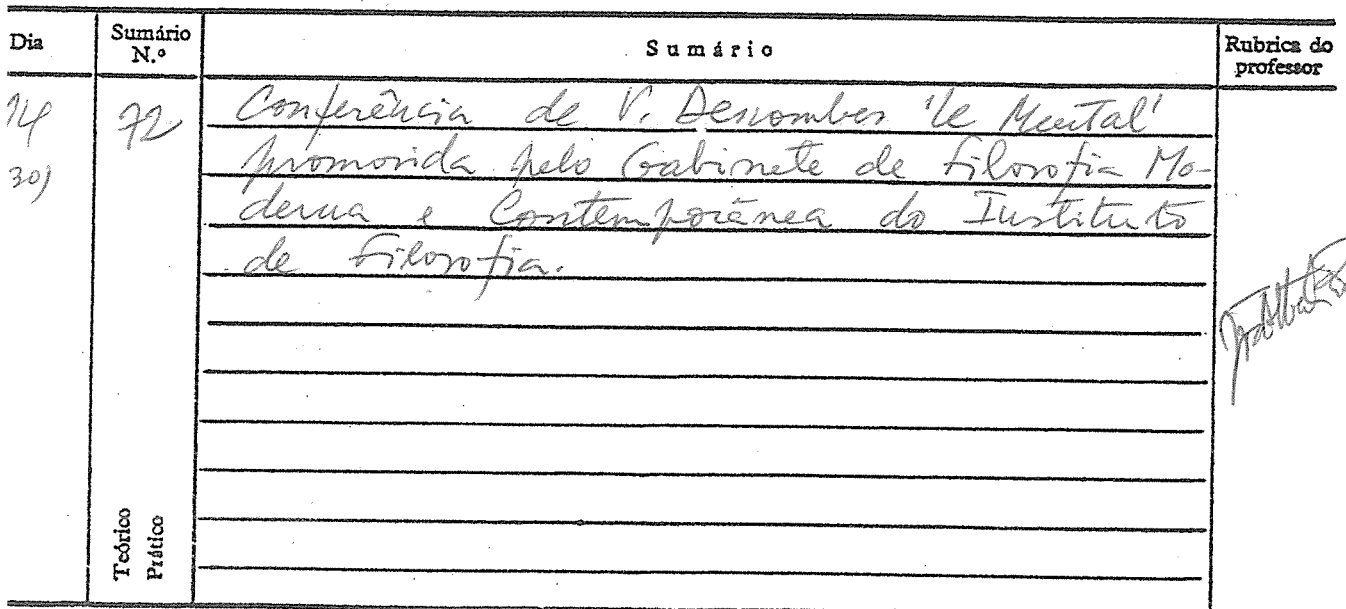 Dia Sumário N.º Sumário Rubrica do professor
14 72 Conferência de V. Descombes 'Le Mental'
30) promovida pelo Gabinete de Filosofia Mo-
derna e Contemporânea do Instituto
de Filosofia.
Teórico
Prático